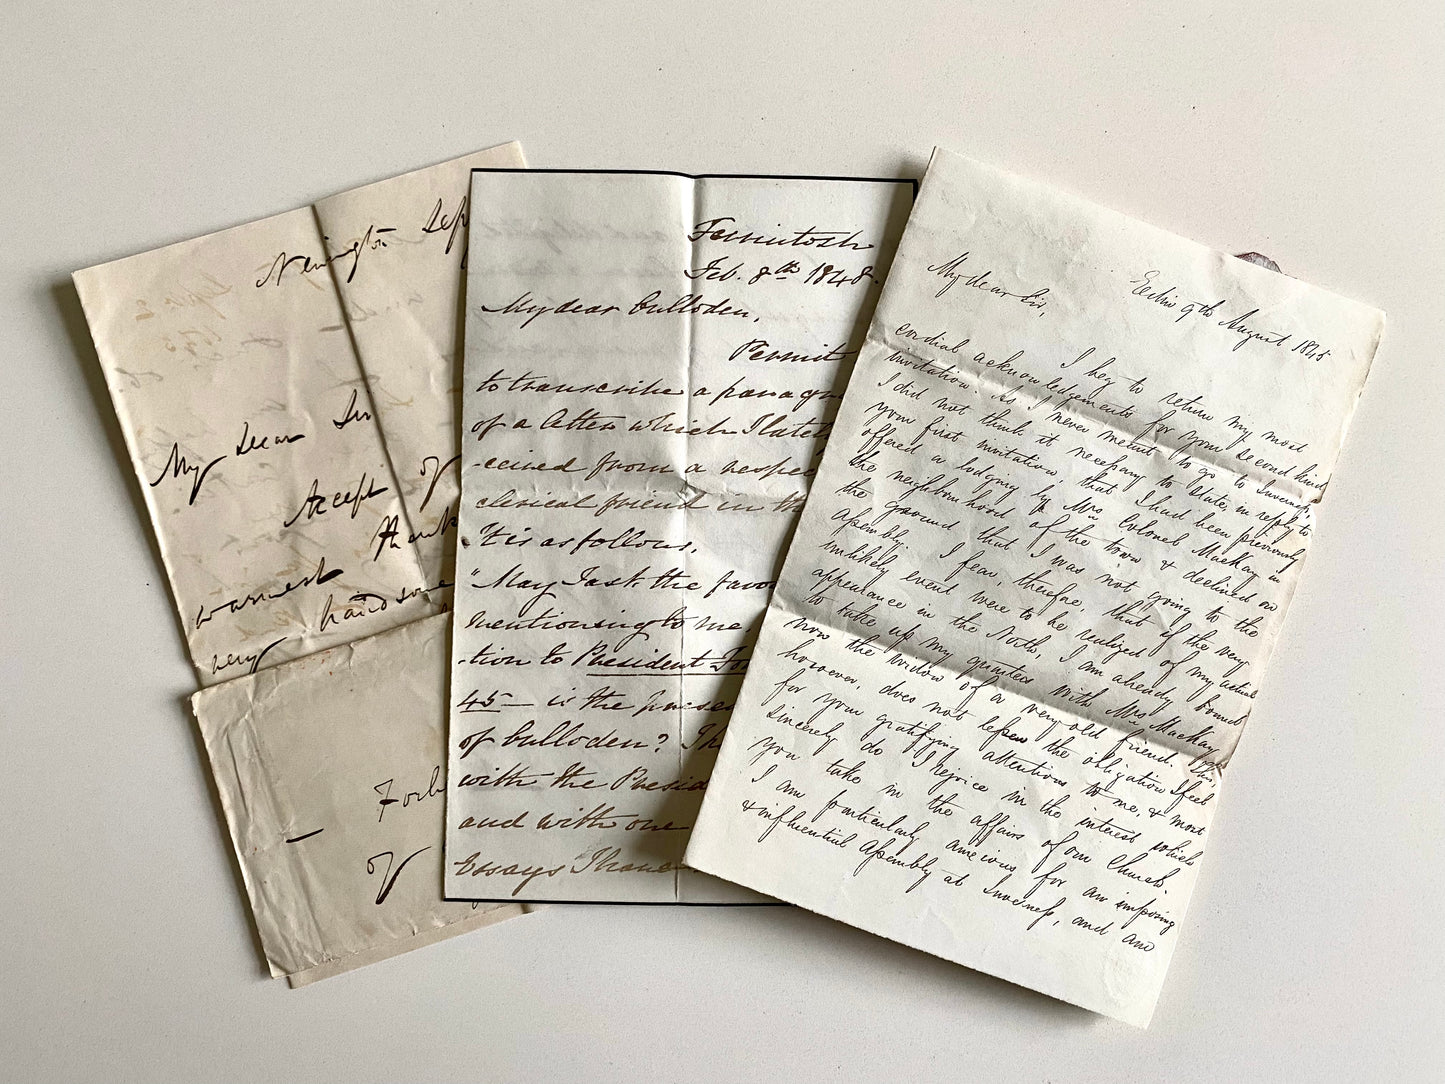 Newington Sep
My Dear Sir
Accept of
warmest thanks
very handsome
Forb
of
Ferrintosh
Feb. 8th 1848.
My dear Culloden,
Permit
to transcribe a paragra
of a letter which I lately
-ceived from a respec
clerical friend in the
It is as follows.
"May I ask the favo
mentioning to me,
-tion to President For
45— is the prese
of Culloden? I h
with the Presid
and with one
Essays I have
9th August 1845
My dear Sir,
I beg to return my most
cordial acknowledgements for your second kind
invitation. As I never meant to go to Inverness,
I did not think it necessary to state, in reply to
your first invitation, that I had been previously
offered a lodging by Mrs Colonel Mackay in
the neighbourhood of the town & declined on
the ground that I was not going to the
Assembly. I fear, therefore, that if the very
unlikely event were to be realized of my actual
appearance in the North, I am already bound
to take up my quarters with Mrs Mackay,
now the widow of a very old friend. This,
however, does not lessen the obligation I feel
for your gratifying attentions to me, & most
sincerely do I rejoice in the interest which
you take in the affairs of our Church.
I am particularly anxious for an imposing
& influential Assembly at Inverness, and am